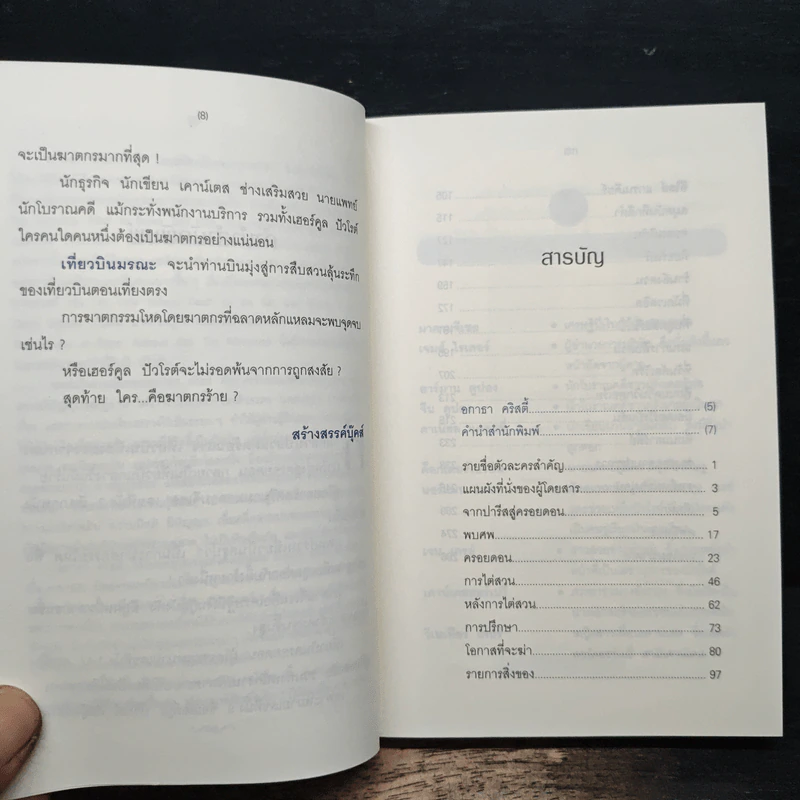 (8)
จะเป็นฆาตกรมากที่สุด !
นักธุรกิจ นักเขียน เคาน์เตส ช่างเสริมสวย นายแพทย์
นักโบราณคดี แม้กระทั่งพนักงานบริการ รวมทั้งเฮอร์คูล ปัวโรต์
ใครคนใดคนหนึ่งต้องเป็นฆาตกรอย่างแน่นอน
เที่ยวบินมรณะ จะนำท่านบินมุ่งสู่การสืบสวนลุ้นระทึก
ของเที่ยวบินตอนเที่ยงตรง
การฆาตกรรมโหดโดยฆาตกรที่ฉลาดหลักแหลมจะพบจุดจบ
เช่นไร ?
หรือเฮอร์คูล ปัวโรต์จะไม่รอดพ้นจากการถูกสงสัย ?
สุดท้าย ใคร...คือฆาตกรร้าย ?
สร้างสรรค์บุ๊คส์
สารบัญ
อกาธา คริสตี้ (5)
คำนำสำนักพิมพ์ (7)
รายชื่อตัวละครสำคัญ 1
แผนผังที่นั่งของผู้โดยสาร 3
จากปารีสสู่ครอยดอน 5
พบศพ 17
ครอยดอน 23
การไต่สวน 46
หลังการไต่สวน 62
การปรึกษา 73
โอกาสที่จะฆ่า 80
รายการสิ่งของ 97